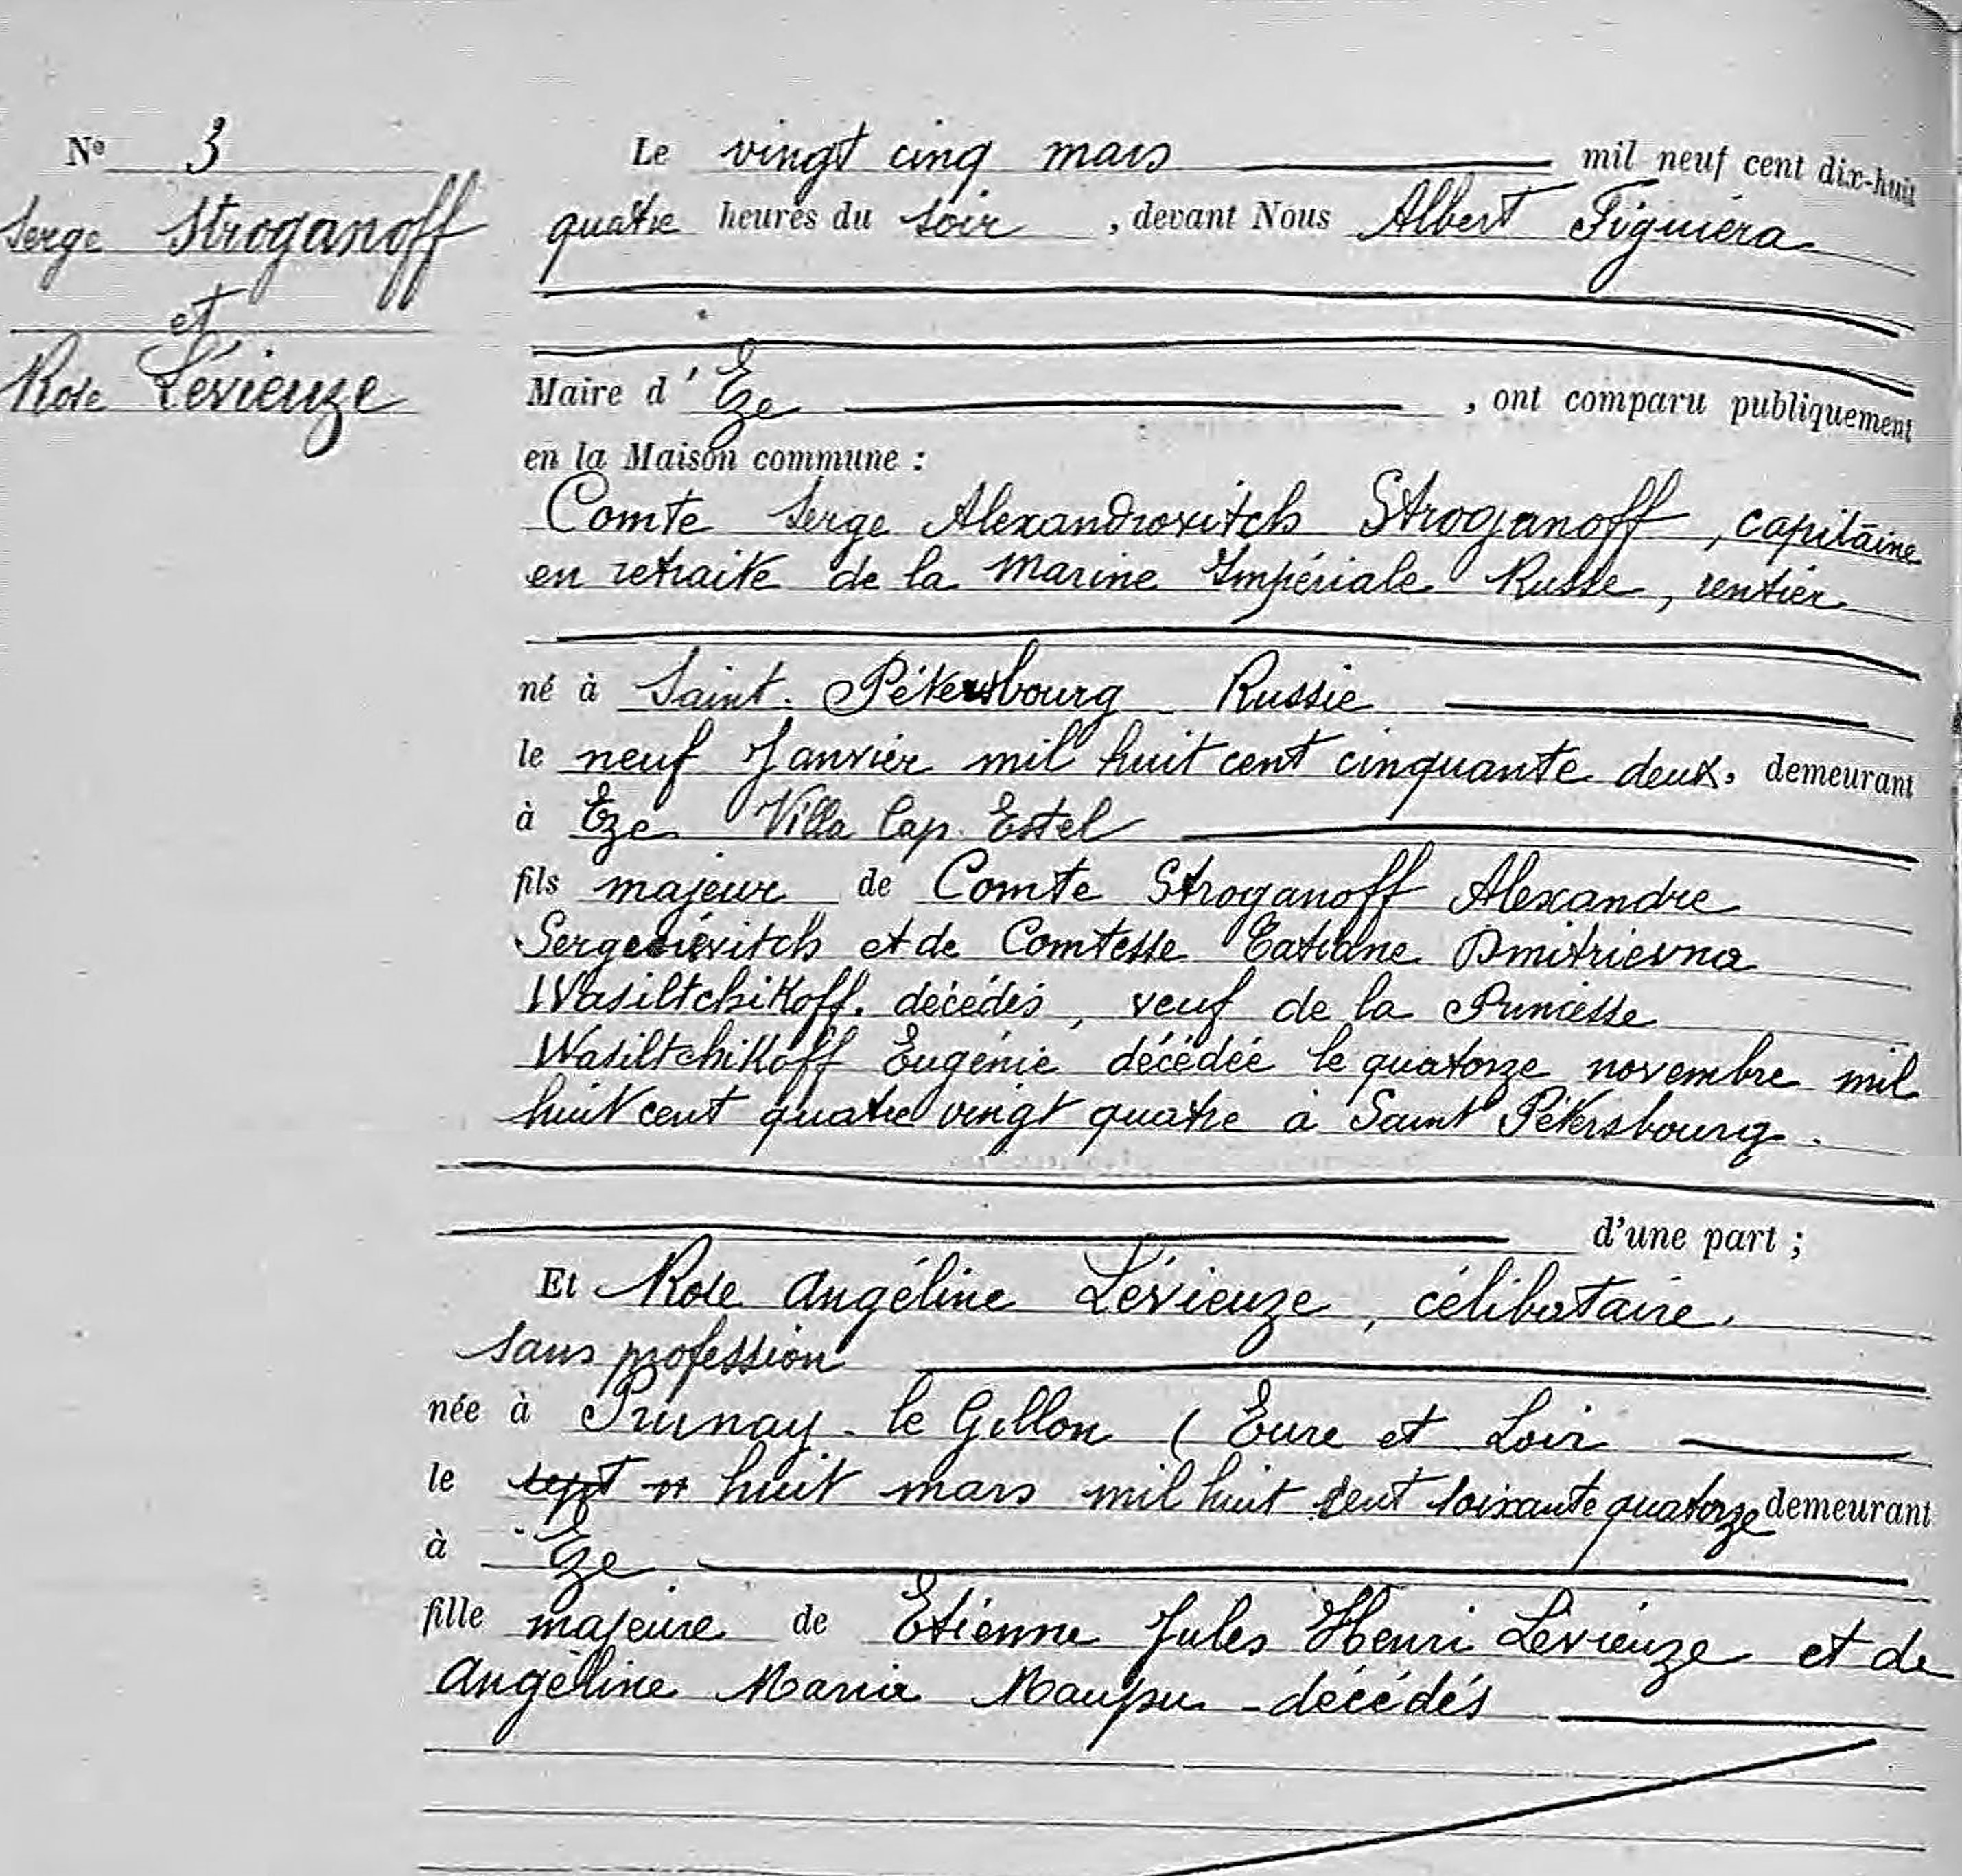 Nº 3
Serge Stroganoff
et
Rose Lévieuze
Le vingt cinq mars mil neuf cent dix-huit
quatre heures du soir, devant Nous Albert Figuiéra
Maire d'Eze, ont comparu publiquement
en la Maison commune :
Comte Serge Alexandrovitch Stroganoff, capitaine
en retraite de la Marine Impériale Russe, rentier
né à Saint. Pétersbourg - Russie
le neuf Janvier mil huit cent cinquante deux, demeurant
à Eze Villa Cap. Estel
fils majeur de Comte Stroganoff Alexandre
et de Comtesse Tatiane Dmitrievna
Wasiltchikoff. décédés, veuf de la Princesse
Wasiltchikoff Eugénie décédée le quatorze novembre mil
huit cent quatre vingt quatre à Saint Pétersbourg.
d'une part ;
Et Rose Angéline Lévieuze, célibataire,
sans profession
née à Prunay - le Gillon ( Eure et Loir
le sept huit mars mil huit cent soixante quatorze demeurant
à Eze
fille majeure de Etienne Jules Henri Lévieuze et de
Angéline Maria Maupu - décédés